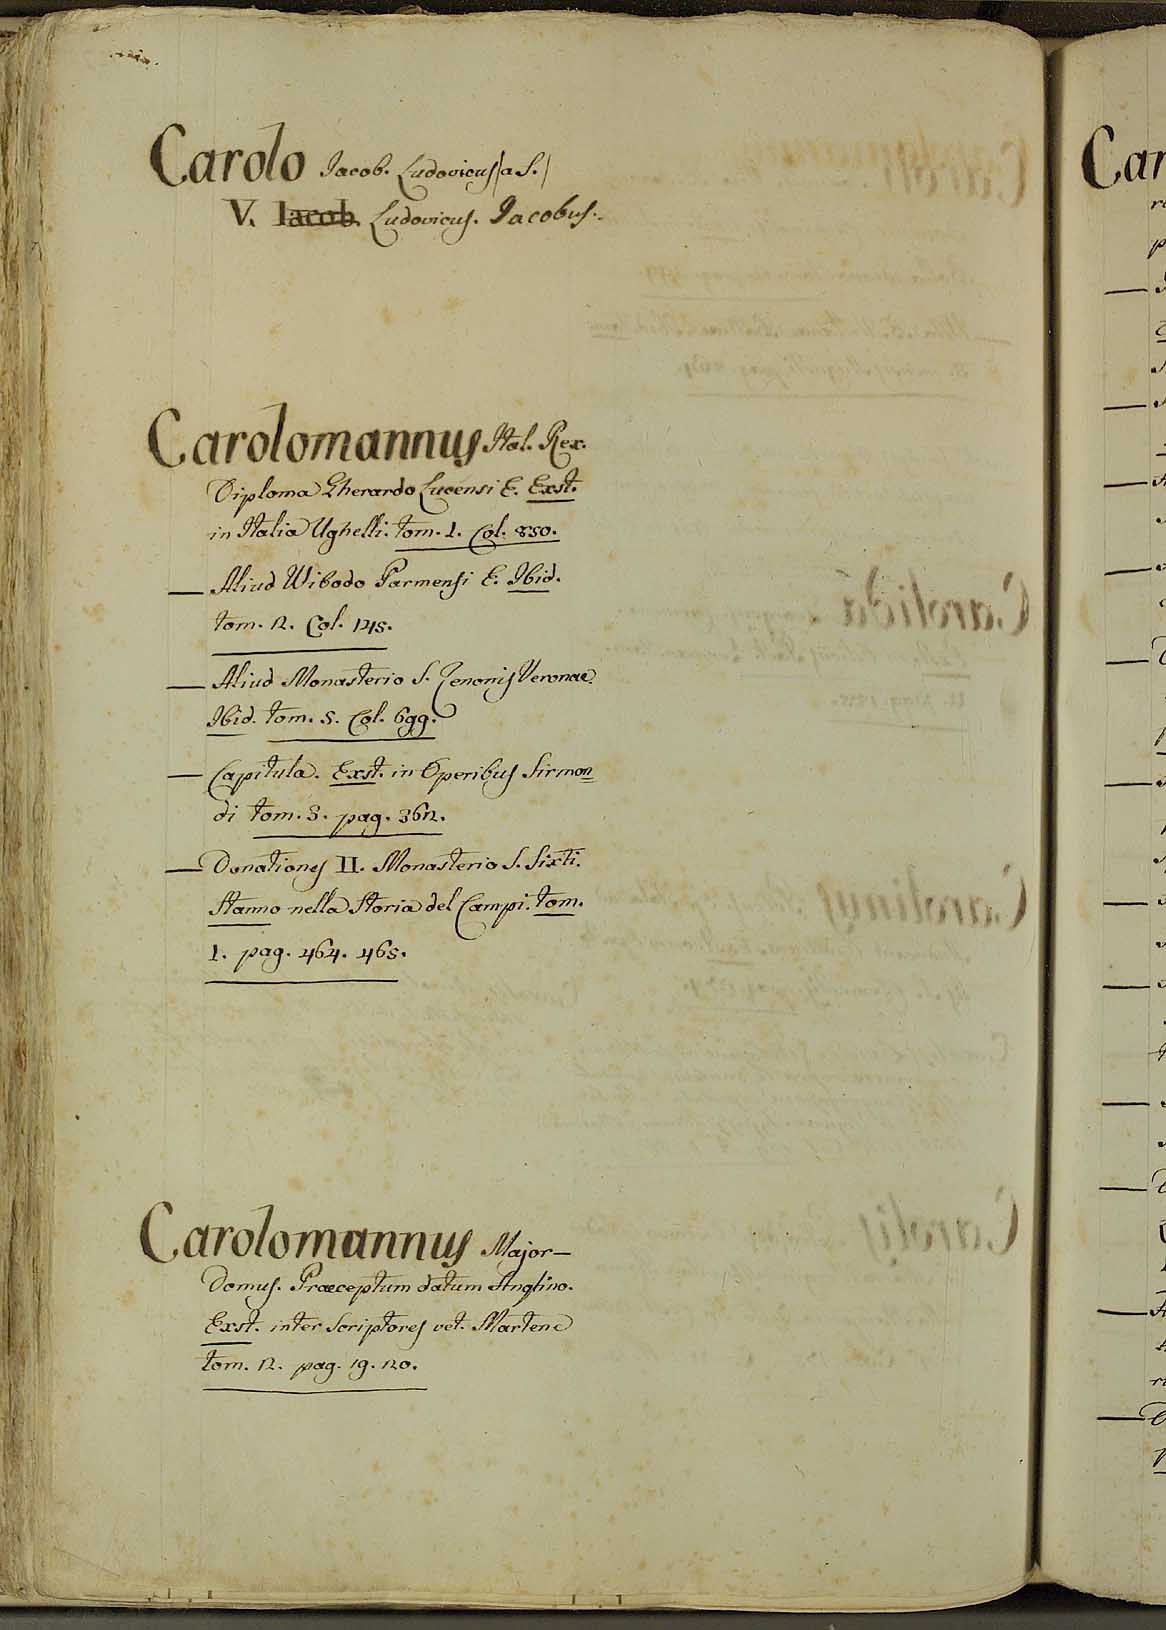 Carolo Jacob. Ludovicus (a S.)
V. Iacob. Ludovicus. Jacobus.
Carolomannus Ital. Rex.
Diploma Gherardo Lucensi E. Exst.
in Italia Ughelli. tom. 1. Col. 850.
— Aliud Wibodo Parmensi E. Ibid.
tom. 2. Col. 125.
— Aliud Monasterio S. Zenonis Veronae.
Ibid. tom. 5. Col. 699.
— Capitula. Exst. in Operibus Sirmon=
di tom. 3. pag. 362.
— Donationes II. Monasterio S. Sixti.
Stanno nella Storia del Campi. tom.
1. pag. 464. 465.
Carolomannus Major-
Domus. Praeceptum datum Anglino.
Exst. inter Scriptores vet. Martene
tom. 2. pag. 19. 20.
Car